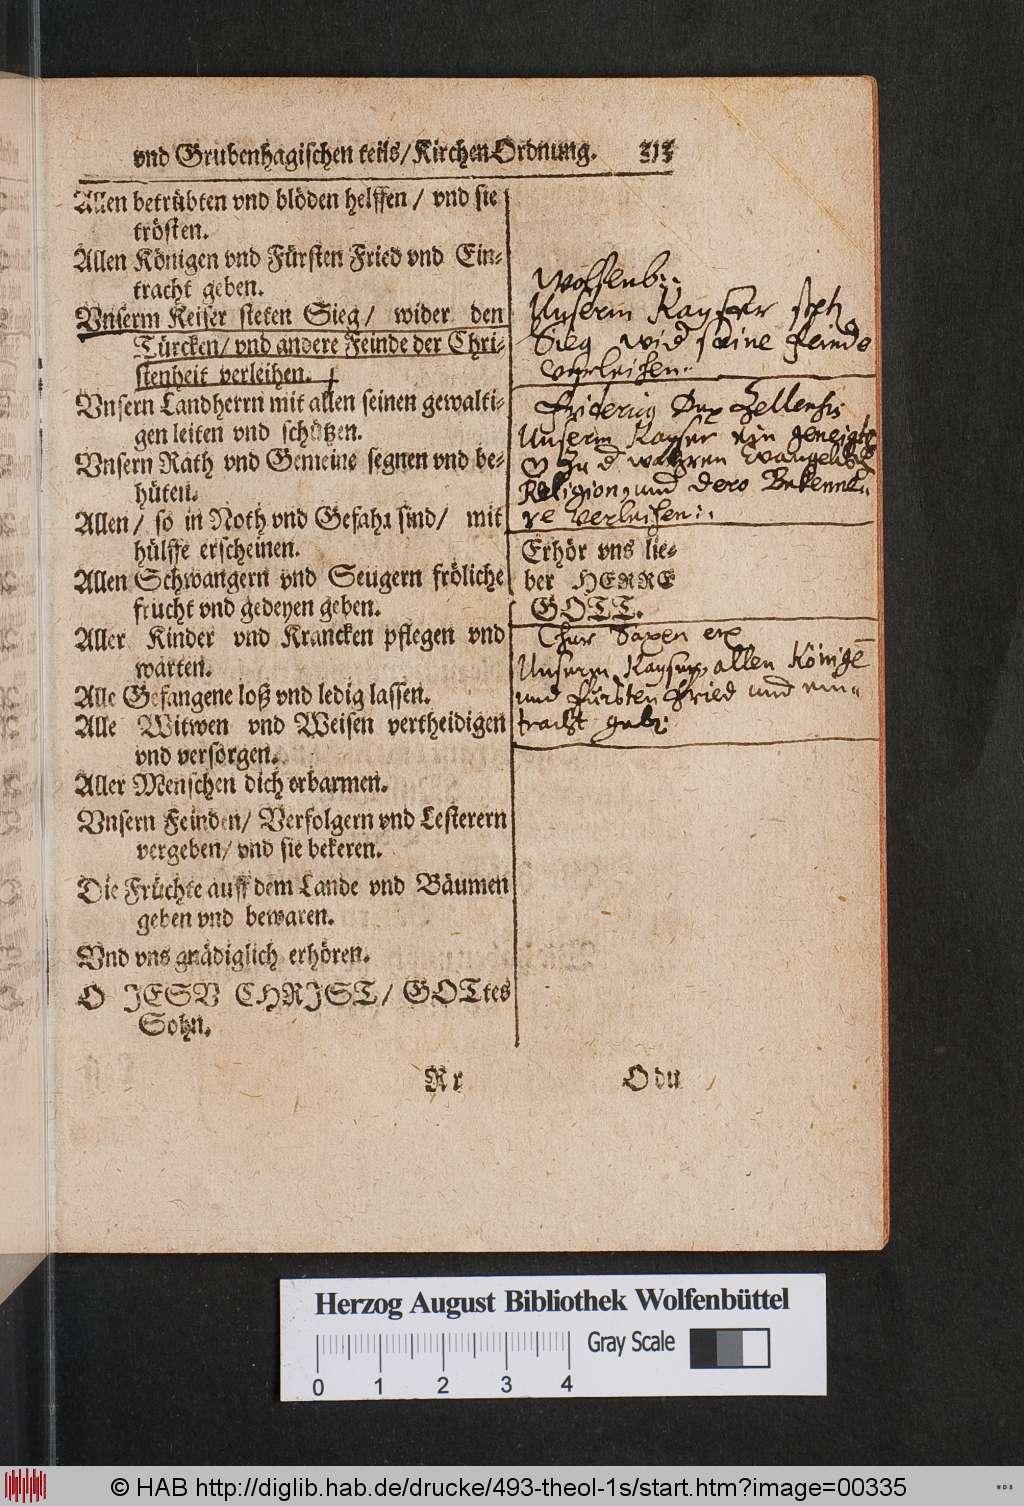 vnd Grubenhagischen teils/ KirchenOrdnung. 313
Allen betrübten vnd blöden helffen / vnd sie
trösten.
Allen Königen vnd Fürsten Fried vnd Ein-
tracht geben.
Vnserm Keiser steten Sieg/ wider den
Türcken/ vnd andere Feinde der Chri-
stenheit verleihen.
Vnsern Landherrn mit allen seinen gewalti-
gen leiten vnd schützen.
Vnsern Rath vnd Gemeine segnen vnd be-
hüten.
Allen/ so in Noth vnd Gefahr sind/ mit
hülffe erscheinen.
Allen Schwangern vnd Seugern fröliche
frucht vnd gedeyen geben.
Aller Kinder vnd Krancken pflegen vnd
warten.
Alle Gefangene loß vnd ledig lassen.
Alle Witwen vnd Weisen vertheidigen
vnd versorgen.
Aller Menschen dich erbarmen.
Vnsern Feinden/ Verfolgern vnd Lesterern
vergeben/ vnd sie bekeren.
Die Früchte auff dem Lande vnd Bäumen
geben vnd bewaren.
Vnd vns gnädiglich erhören.
O JESV CHRJST/ GOTtes
Sohn.
Wolfenb:
Unserm Kayser
Sieg wid seine feinde
verleihen.
Friderig Dux Zellensis
Unserm Kayser ein
wahren Evangelisch
Religion, und dero Bekenne
re verleihen:
Erhör vns lie-
ber HERRE
GOTT.
Chur Saxen
Unserm Kayser, allen Könige
und fürsten fried und ein-
tracht geb:
Rr Odu
Herzog August Bibliothek Wolfenbüttel
Gray Scale
0 1 2 3 4
© HAB http://diglib.hab.de/drucke/493-theol-1s/start.htm?image=00335